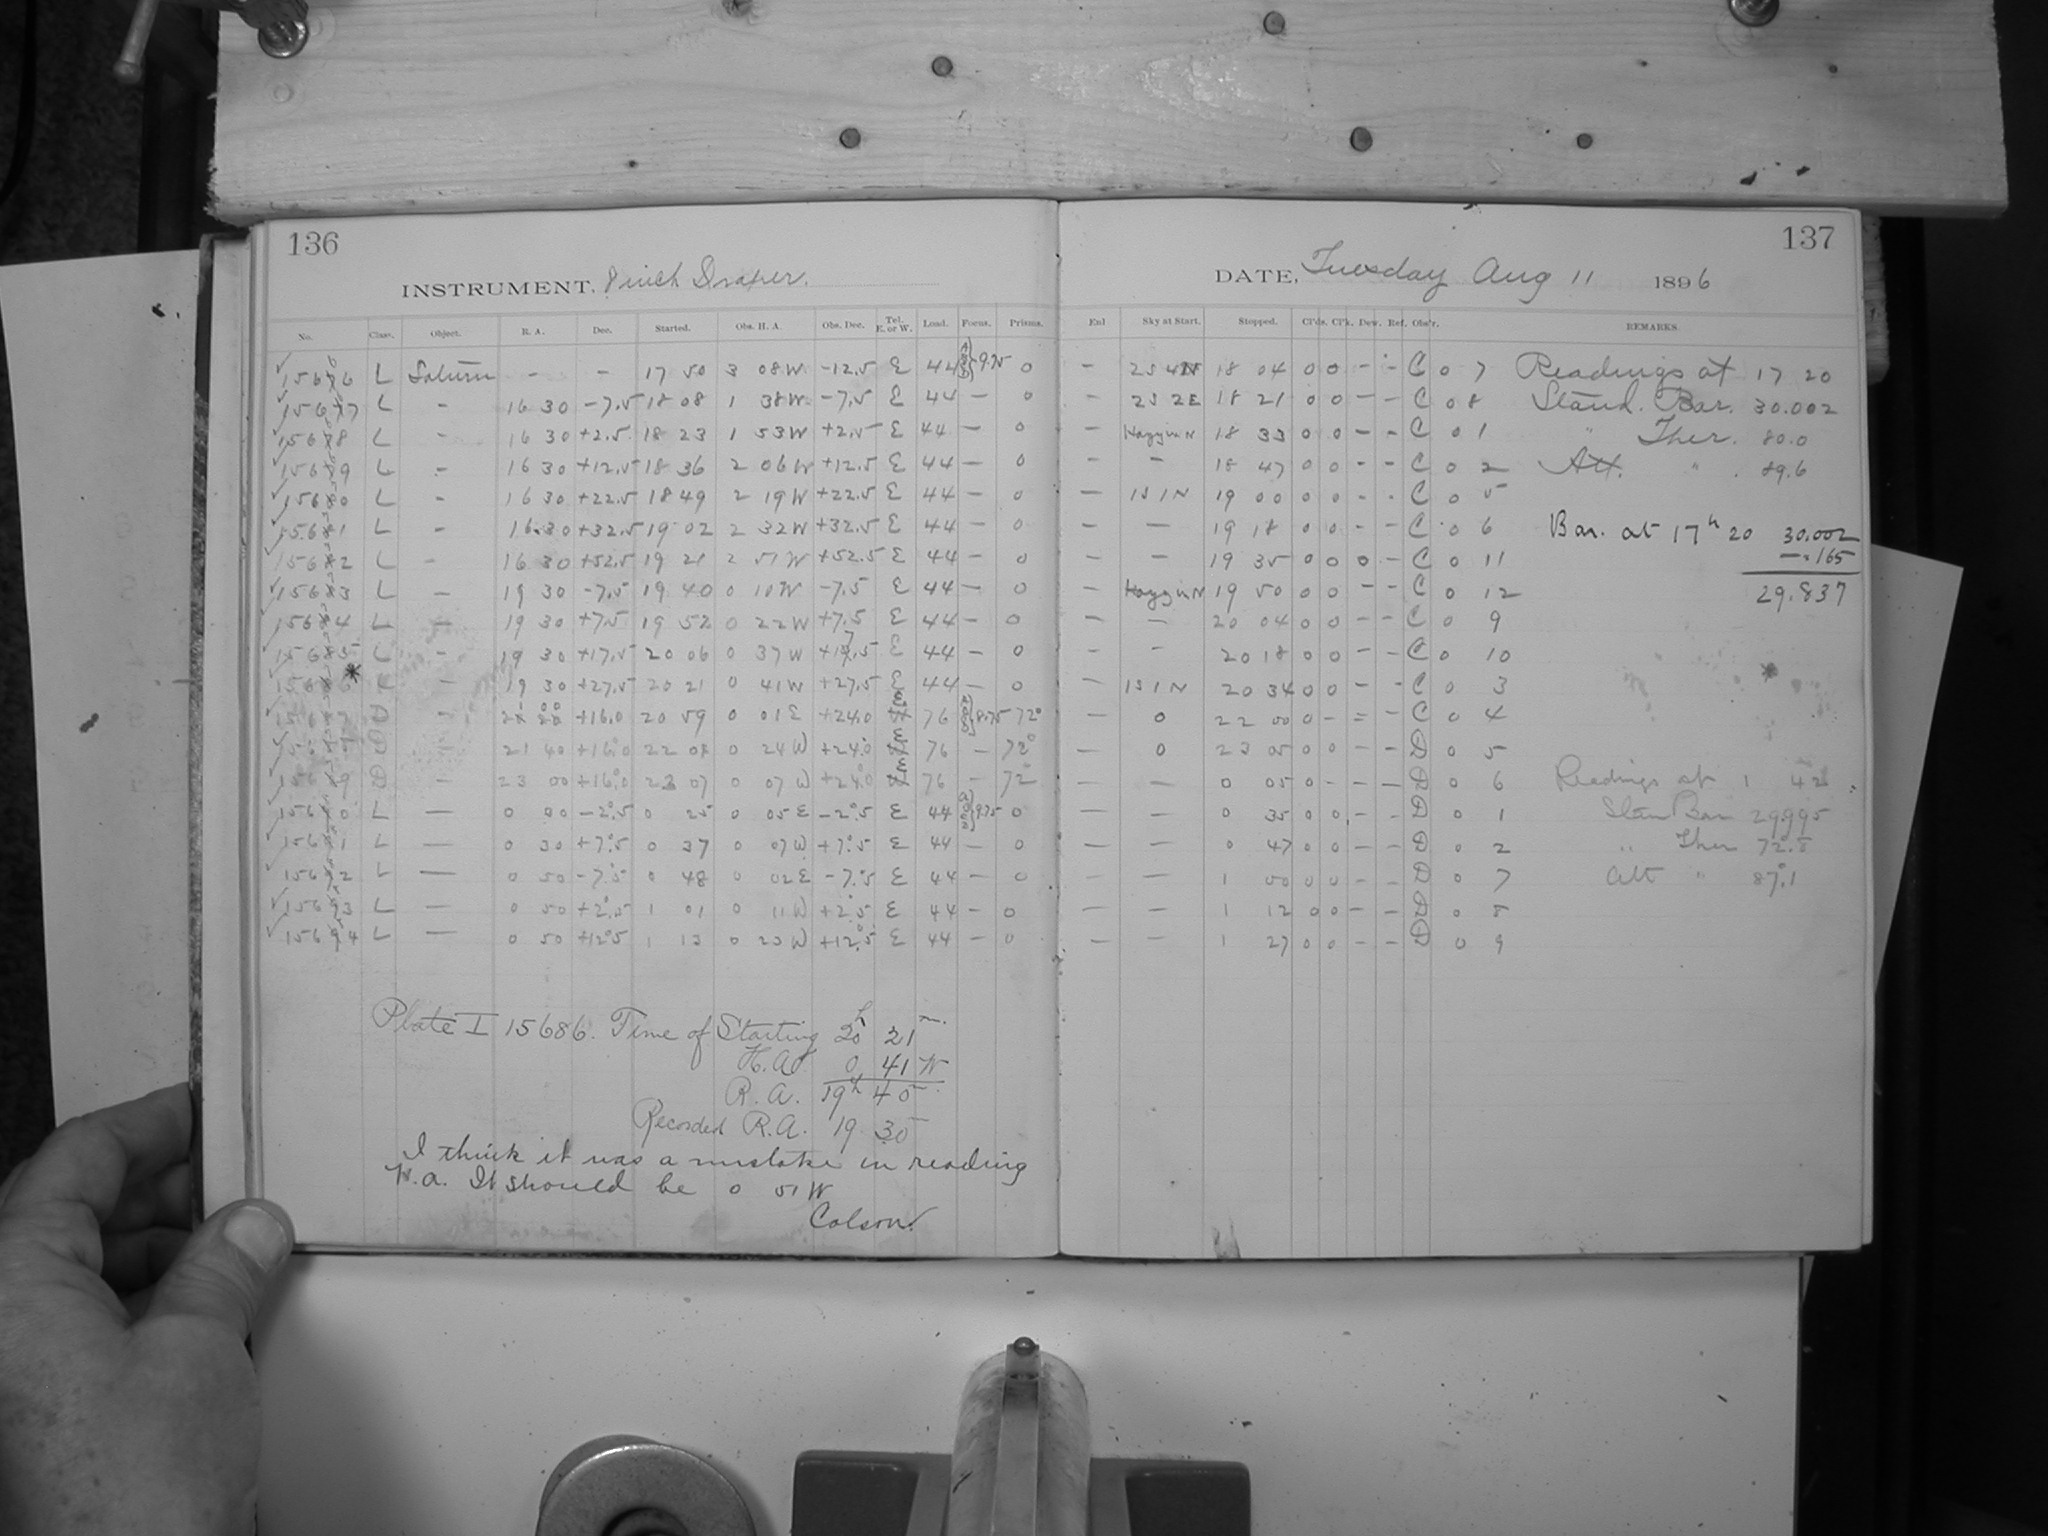 136
INSTRUMENT, 8 inch Draper.
No. Class. Object. R. A. Dec. Started. Obs. H. A. Obs. Dec. Tel. E. or W. Load. Focus. Prisms.
L Saturn - - 17 50 3 08 W -12.5 E 44 9.75 0
L - 16 30 -7.5 18 08 1 38 W -7.5 E 44 - 0
L - 16 30 +2.5 18 23 1 53 W +2.5 E 44 - 0
L - 16 30 +12.5 18 36 2 06 W +12.5 E 44 - 0
L - 16 30 +22.5 18 49 2 19 W +22.5 E 44 - 0
L - 16 30 +32.5 19 02 2 32 W +32.5 E 44 - 0
L - 16 30 +52.5 19 21 2 51 W +52.5 E 44 - 0
L - 19 30 -7.5 19 40 0 10 W -7.5 E 44 - 0
L - 19 30 +7.5 19 52 0 22 W +7.5 E 44 - 0
L - 19 30 +17.5 20 06 0 37 W +17.5 E 44 - 0
* L - 19 30 +27.5 20 21 0 41 W +27.5 E 44 - 0
D - +16.0 20 59 0 01 E +24.0 E 76 8.75 72°
D - 21 40 +16.0 22 04 0 24 W +24.0 E 76 - 72°
D - 23 00 +16.0 23 07 0 07 W +24.0 E 76 - 72°
L - 0 00 -2.5 0 25 0 05 E -2.5 E 44 9.75 0
L - 0 30 +7.5 0 37 0 07 W +7.5 E 44 - 0
L - 0 50 -7.5 0 48 0 02 E -7.5 E 44 - 0
L - 0 50 +2.5 1 01 0 11 W +2.5 E 44 - 0
L - 0 50 +12.5 1 13 0 23 W +12.5 E 44 - 0
Plate I 15686. Time of Starting 20h 21m.
H.A. 0 41 W
R.A. 19h 40
Recorded R.A. 19 30
I think it was a mistake in reading
H.a. It should be 0 51 W
Colson.
137
DATE, Tuesday Aug 11 1896
Enl Sky at Start. Stopped. Cl'ds. Cl'k. Dew. Ref. Obs'r. REMARKS.
- 18 04 0 0 - - C 0 7 Readings at 17 20
- 2S 2E 18 21 0 0 - - C 0 8 Stand. Bar. 30.002
- 18 33 0 0 - - C 0 1 " Ther. 80.0
- - 18 47 0 0 - - C 0 2 Att. " 89.6
- 1S 1N 19 00 0 0 - - C 0 5
- - 19 18 0 0 - - C 0 6 Bar. at 17h 20 30.002
- - 19 35 0 0 0 - C 0 11 -.165
- 19 50 0 0 - - C 0 12 29.837
- - 20 04 0 0 - - C 0 9
- - 20 18 0 0 - - C 0 10
- 1S 1N 20 34 0 0 - - C 0 3
- 0 22 00 0 - = - C 0 4
- 0 23 05 0 0 - - D 0 5
- - 0 05 0 - - - D 0 6 Readings at 1 42
- - 0 35 0 0 - - D 0 1 Stan Bar 29.995
- - 0 47 0 0 - - D 0 2 " Ther 72.8
- - 1 00 0 0 - - D 0 7 Att " 87.1
- - 1 12 0 0 - - D 0 8
- - 1 27 0 0 - - D 0 9